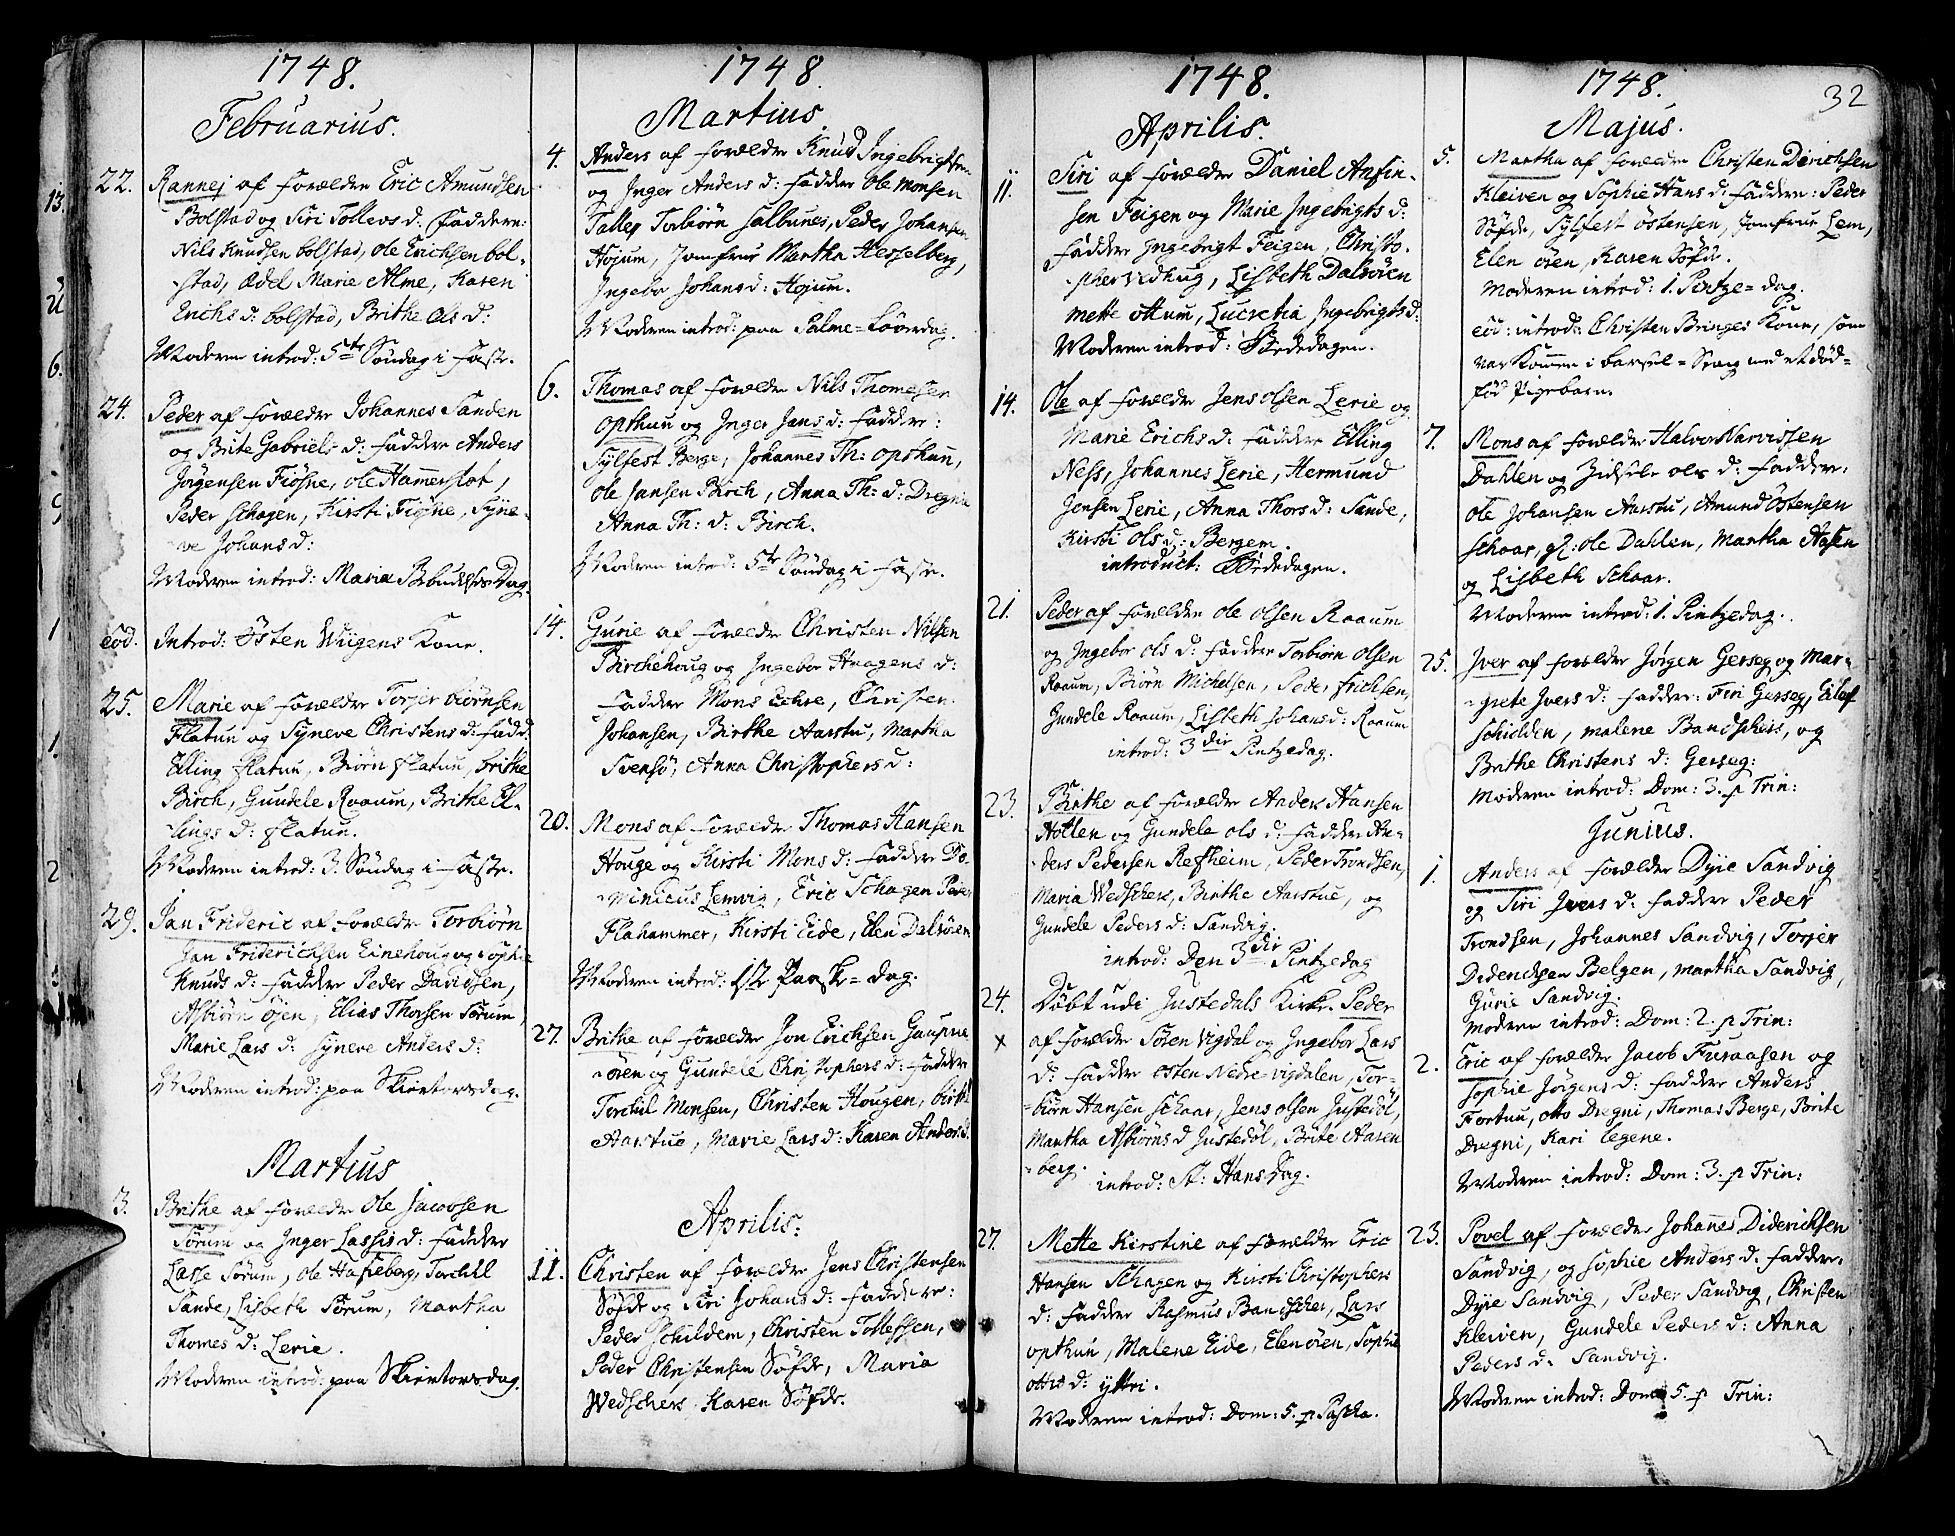 1748.
Februarius.
22. Rannej af forældre Eric Amundsen
Bolstad og Siri Tollevs d: Faddere:
Nils Knudsen bolstad, ole Erichsen bol-
stad,Ædel Marie Alme, Karen
Erichs d: bolstad, Brithe Ols d:
Moderen introd: 5te Søndag i Faste.
24. Peder af forældre Johannes Sanden
og Brite Gabriels d: Faddere Anders
Jørgensen Fiøsne, ole Hamerslot,
Peder Schagen, Kirsti Fiøsne, Syne-
ve Johans d:
Moderen introd: Mariæ Bebudelses Dag.
eod. Introd: Østen Wiigens Kone.
25. Marie af forældre Torjer biørnsen
Flatuu og Syneve Christens d: Fadd:
Elling flatuu, Biørn flatuu, brithe
Birch, Gundele Roaum, Brithe El-
lings d: flatuu.
Moderen introd: 3. Søndag i Faste.
29. Jan Frideric af forældre Torbiørn
Jan Friderichsen Einehoug og Sophie
Knuds d: Faddere Peder Davidsen,
Asbiørn Øjen, Elias Thorsen Sørum,
Marie Lars d: Syneve Anders d:
Moderen introd: paa Skiertorsdag.
Martius
3. Brithe af forældre Ole Jacobsen
Sørum og Inger Lassis d: Faddere
Lasse Sørum, ole Hafseberg, Torchil
Sande, Lisbeth Sørum, Martha
Thomes d: Lerie.
Moderen introd: paa Skiertorsdag.
1748.
Martius
4. Anders af forældre Knud Ingebrigtsen
og Inger Anders d: Faddere Ole Monsen
Talley Torbiørn Salbunes, Peder Johansen
Højum, Jomfrue Martha Hesselberg,
Ingebor Johans d: Højum.
Moderen introd: paa Palme-Løverdag.
6. Thomas af forældre Nils Thomesen
Opthun og Inger Jans d: Faddere:
Sylfest Berge, Johannes Th: opthun,
Ole Jansen Birch, Anna Th: d: Dregni
Anna Th: d: Birch.
Moderen introd: 5te Søndag i Faste.
14. Gurie af forældre Christen Nilsen
Birchehoug og Ingebor Haagens d:
Faddere Mons Echre, Christen
Johansen, Birthe Aarstu, Martha
Svensø, Anna Christophers d:
20. Mons af forældre Thomas Hansen
Houge og Kirsti Mons d: Faddere Do-
minicus Lemvig, Eric Schagen Peder
Flahammer, Kirsti Eide, Elen Dalsøren
Moderen introd: 1ste Paaske-dag.
27. Brithe af forældre Jon Erichsen Gaupne
øren og Gundele Christophers d: faddere
Torchil Monsen, Christen Hougen, birthe
Aarstue, Marie Lars d: Karen Anders d.
Aprilis:
11. Christen af forældre Jens Christensen
Søfde og Siri Johans d: Faddere:
Peder Schildem, Christen Tollefsen,
Peder Christensen Søfde, Maria
Wedschers Karen Søfde.
1748.
Aprilis.
11. Siri af forældre Daniel Anfin-
sen Feigen og Marie Ingebrigts d:
Faddere Ingebrigt Feigen, Christo-
pher Vedhug, Lisbeth Dalsøren
Mette ottum, Lucretia Ingebrigts d:
Moderen introd: Bededagen.
14. Ole af forældre Jens olsen Lerie og
Marie Erichs d: Faddere Elling
Ness, Johannes Lerie, Hermund
Jensen Lerie, Anna Thors d: Sande,
Kirsti Ols d: Bergem.
introduct: Bededagen.
21. Peder af forældre ole olsen Roaum
og Ingebor Ols d: Faddere Torbiørn Olsen
Roaum, Biørn Michelsen, Peder Erichsen,
Gundele Roaum, Lisbeth Johans d: Roaum
introd: 3die Pintzedag.
23. Birthe af forældre Anders Hansen
Hollen og Gundele Ols d: Faddere An-
ders Pedersen Refsheim, Peder Trondsen,
Maria Wedschers, Birthe Aarstue, og
Gundele Peders d: Sandvig.
introd: Den 3die Pintzedag
24. Døbt udi Justedals Kirke Peder
x af forældre Søren Vigdal og Ingebor Lars
d: Faddere Østen Nedre-vigdalen, Tor-
biørn Hansen Schaar, Jens olsen Justedøl,
Martha Asbiørns d Justedøl, Brite Aasen
berg.
introd: St: Hans Dag.
27. Mette Kirstine af forældre Eric
Hansen Schagen og Kirsti Christophers
d: Faddere Rasmus Bandscher, Lars
Opthun, Malene Eide, Elen øren, Sophie
ottis d: ytteri.
Moderen introd: Dom: 5. p Pascha.
1748.
32
Majus.
5. Martha af forældre Christen Dirichsen
Kleiven og Sophie Hans d: Faddere: Peder
Søfde, Sylfest Østensen, Jomfrue Lem,
Elen øren, Karen Søfde.
Moderen introd: 1. Pintze-dag.
eod: introd: Christen Bringes Kone, som
var Kommen i barsel-Seng med et død-
fød Pigebarn.
7. Mons af forældre Halvor Narvissen
Dahlen og Zidsele ols d: Faddere:
Ole Johansen Aarstu, Amund Østensen
Schaar, gl: ole Dahlen, Martha Aasen
og Lisbeth Schaar.
Moderen introd: 1. Pintzedag.
25. Iver af forældre Jørgen Gerseg og Mar-
grete Ivers d: Faddere: Siri Gerseg, Eilef
Schilden, Malene Bandschers, og
Brithe Christens d: Gerseg:
Moderen introd: Dom: 3. p Trin:
Junius.
1. Anders af forældre Dyie Sandvig
og Siri Ivers d: Faddere Peder
Trondsen, Johannes Sandvig, Torjer
Didendsen Belgen, Martha Sandvig,
Gurie Sandvig.
Moderen introd: Dom: 2. p Trin:
2. Eric af forældre Jacob Furaasen og
Sophie Jørgens d: Faddere Anders
Fortun, Otto Dregni, Thomas Berge, Brite
Dregni, Kari legene.
Moderen introd: Dom: 3. p Trin:
23. Povel af forældre Johannes Diderichsen
Sandvig, og Sophie Anders d: Faddere:
Dyie Sandvig, Peder Sandvig, Christen
Kleiven, Gundele Peders d: Anna
Peders d: Sandvig.
Moderen introd: Dom: 5. p Trin: